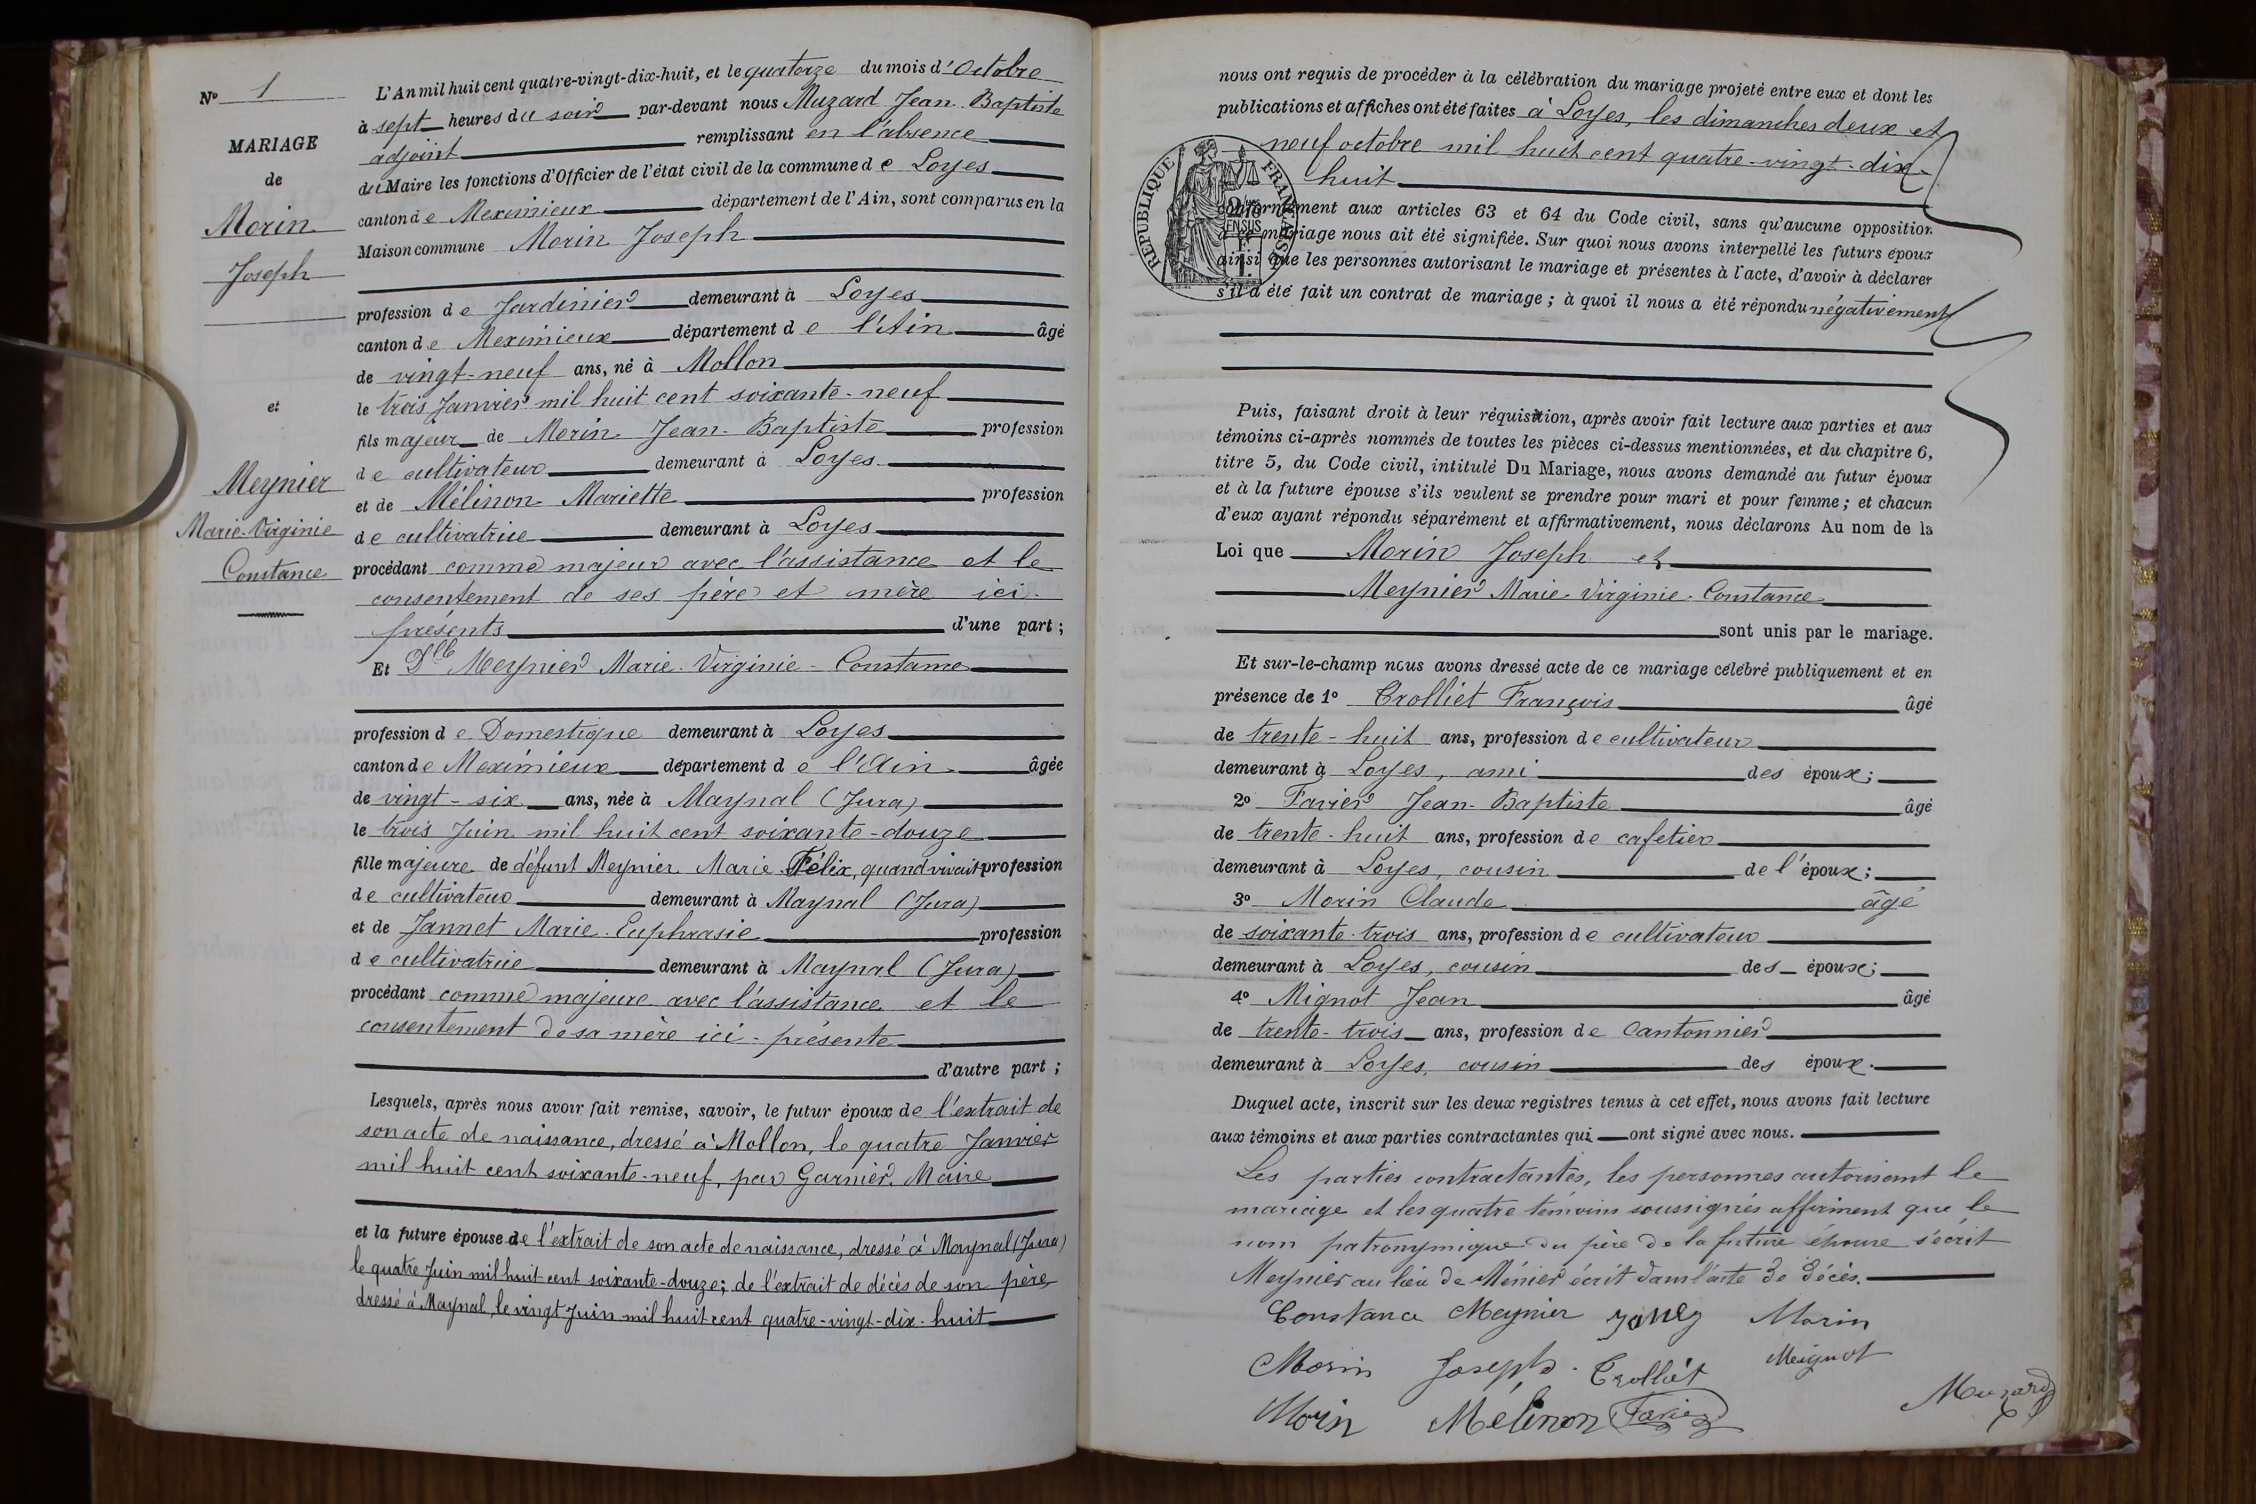 N° 1
MARIAGE
de
Morin
Joseph
et
Meynier
Marie-Virginie
Constance
L'An mil huit cent quatre-vingt-dix-huit, et le quatorze du mois d'Octobre
à sept heures du soir par-devant nous Muzard Jean-Baptiste
adjoint remplissant en l'absence
du Maire les fonctions d'Officier de l'état civil de la commune de Loyes
canton de Meximieux département de l'Ain, sont comparus en la
Maison commune Morin Joseph
profession de Jardinier demeurant à Loyes
canton de Meximieux département de l'Ain âgé
de vingt-neuf ans, né à Mollon
le trois Janvier mil huit cent soixante-neuf
fils majeur de Morin Jean-Baptiste profession
de cultivateur demeurant à Loyes
et de Mélinon Mariette profession
de cultivatrice demeurant à Loyes
procédant comme majeur avec l'assistance et le
consentement de ses père et mère ici-
présents d'une part ;
Et Dlle Meynier Marie-Virginie-Constance
profession de Domestique demeurant à Loyes
canton de Meximieux département de l'Ain âgée
de vingt-six ans, née à Maynal (Jura)
le trois Juin mil huit cent soixante-douze
fille majeure de défunt Meynier Marie Félix, quand vivait profession
de cultivateur demeurant à Maynal (Jura)
et de Jannet Marie-Euphrasie profession
de cultivatrice demeurant à Maynal (Jura)
procédant comme majeure avec l'assistance et le
consentement de sa mère ici-présente
d'autre part ;
Lesquels, après nous avoir fait remise, savoir, le futur époux de l'extrait de
son acte de naissance, dressé à Mollon, le quatre Janvier
mil huit cent soixante-neuf, par Garnier, Maire
et la future épouse de l'extrait de son acte de naissance, dressé à Maynal (Jura)
le quatre Juin mil huit cent soixante-douze ; de l'extrait de décès de son père,
dressé à Maynal, le vingt Juin mil huit cent quatre-vingt-dix-huit
nous ont requis de procéder à la célébration du mariage projeté entre eux et dont les
publications et affiches ont été faites à Loyes, les dimanches deux et
neuf octobre mil huit cent quatre-vingt-dix-
huit
RÉPUBLIQUE FRANÇAISE
conformément aux articles 63 et 64 du Code civil, sans qu'aucune opposition
à ce mariage nous ait été signifiée. Sur quoi nous avons interpellé les futurs époux
ainsi que les personnes autorisant le mariage et présentes à l'acte, d'avoir à déclarer
s'il a été fait un contrat de mariage ; à quoi il nous a été répondu négativement
Puis, faisant droit à leur réquisition, après avoir fait lecture aux parties et aux
témoins ci-après nommés de toutes les pièces ci-dessus mentionnées, et du chapitre 6,
titre 5, du Code civil, intitulé Du Mariage, nous avons demandé au futur époux
et à la future épouse s'ils veulent se prendre pour mari et pour femme ; et chacun
d'eux ayant répondu séparément et affirmativement, nous déclarons Au nom de la
Loi que Morin Joseph et
Meynier Marie-Virginie-Constance
sont unis par le mariage.
Et sur-le-champ nous avons dressé acte de ce mariage célébré publiquement et en
présence de 1° Crolliet François âgé
de trente-huit ans, profession de cultivateur
demeurant à Loyes, ami des époux ;
2° Favier Jean-Baptiste âgé
de trente-huit ans, profession de cafetier
demeurant à Loyes, cousin de l'époux ;
3° Morin Claude âgé
de soixante-trois ans, profession de cultivateur
demeurant à Loyes, cousin des époux ;
4° Mignot Jean âgé
de trente-trois ans, profession de Cantonnier
demeurant à Loyes, cousin des époux.
Duquel acte, inscrit sur les deux registres tenus à cet effet, nous avons fait lecture
aux témoins et aux parties contractantes qui ont signé avec nous.
Les parties contractantes, les personnes autorisant le
mariage et les quatre témoins soussignés affirment que le
nom patronymique du père de la future épouse s'écrit
Meynier au lieu de Ménier écrit dans l'acte de décès.
Constance Meynier Morin
Morin Joseph Crolliet Mignot
Morin Mélinon Favier Muzard